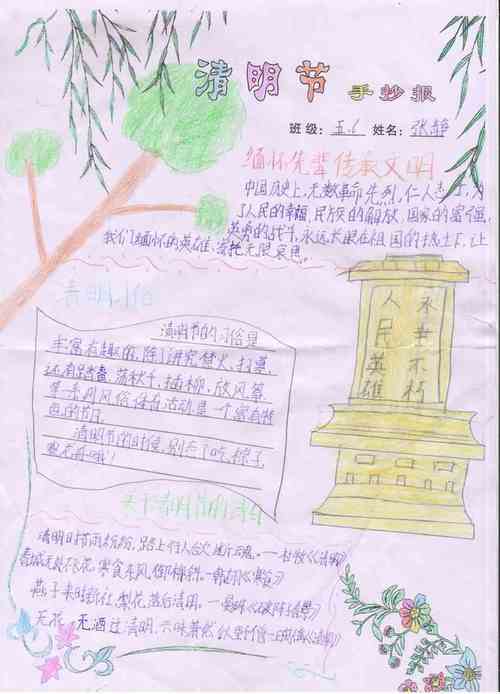 清明节 手抄报
班级: 五.6 姓名: 张静
缅怀先辈 传承文明
中国历史上,无数革命先烈,仁人志士,为
了人民的幸福,民族的解放,国家的富强
英勇的战斗,永远长眠在祖国的热土下,让
我们缅怀的英雄,寄托无限哀思。
清明习俗
人民英雄
永垂不朽
清明节的习俗是
丰富有趣的,除了讲究禁火、扫墓,
还有踏青 荡秋千、插柳、放风筝
等一系列风俗体育活动是一个富有特
色的节日
清明节的时候,别忘了吃粽子
关于清明节的诗句
清明时节雨纷纷,路上行人欲断魂。——杜牧《清明》
春城无处不飞花,寒食东风御柳斜。—韩翃《寒食》
燕子来时新社,梨花落后清明。—晏殊《破阵子
无花 无酒过清明,